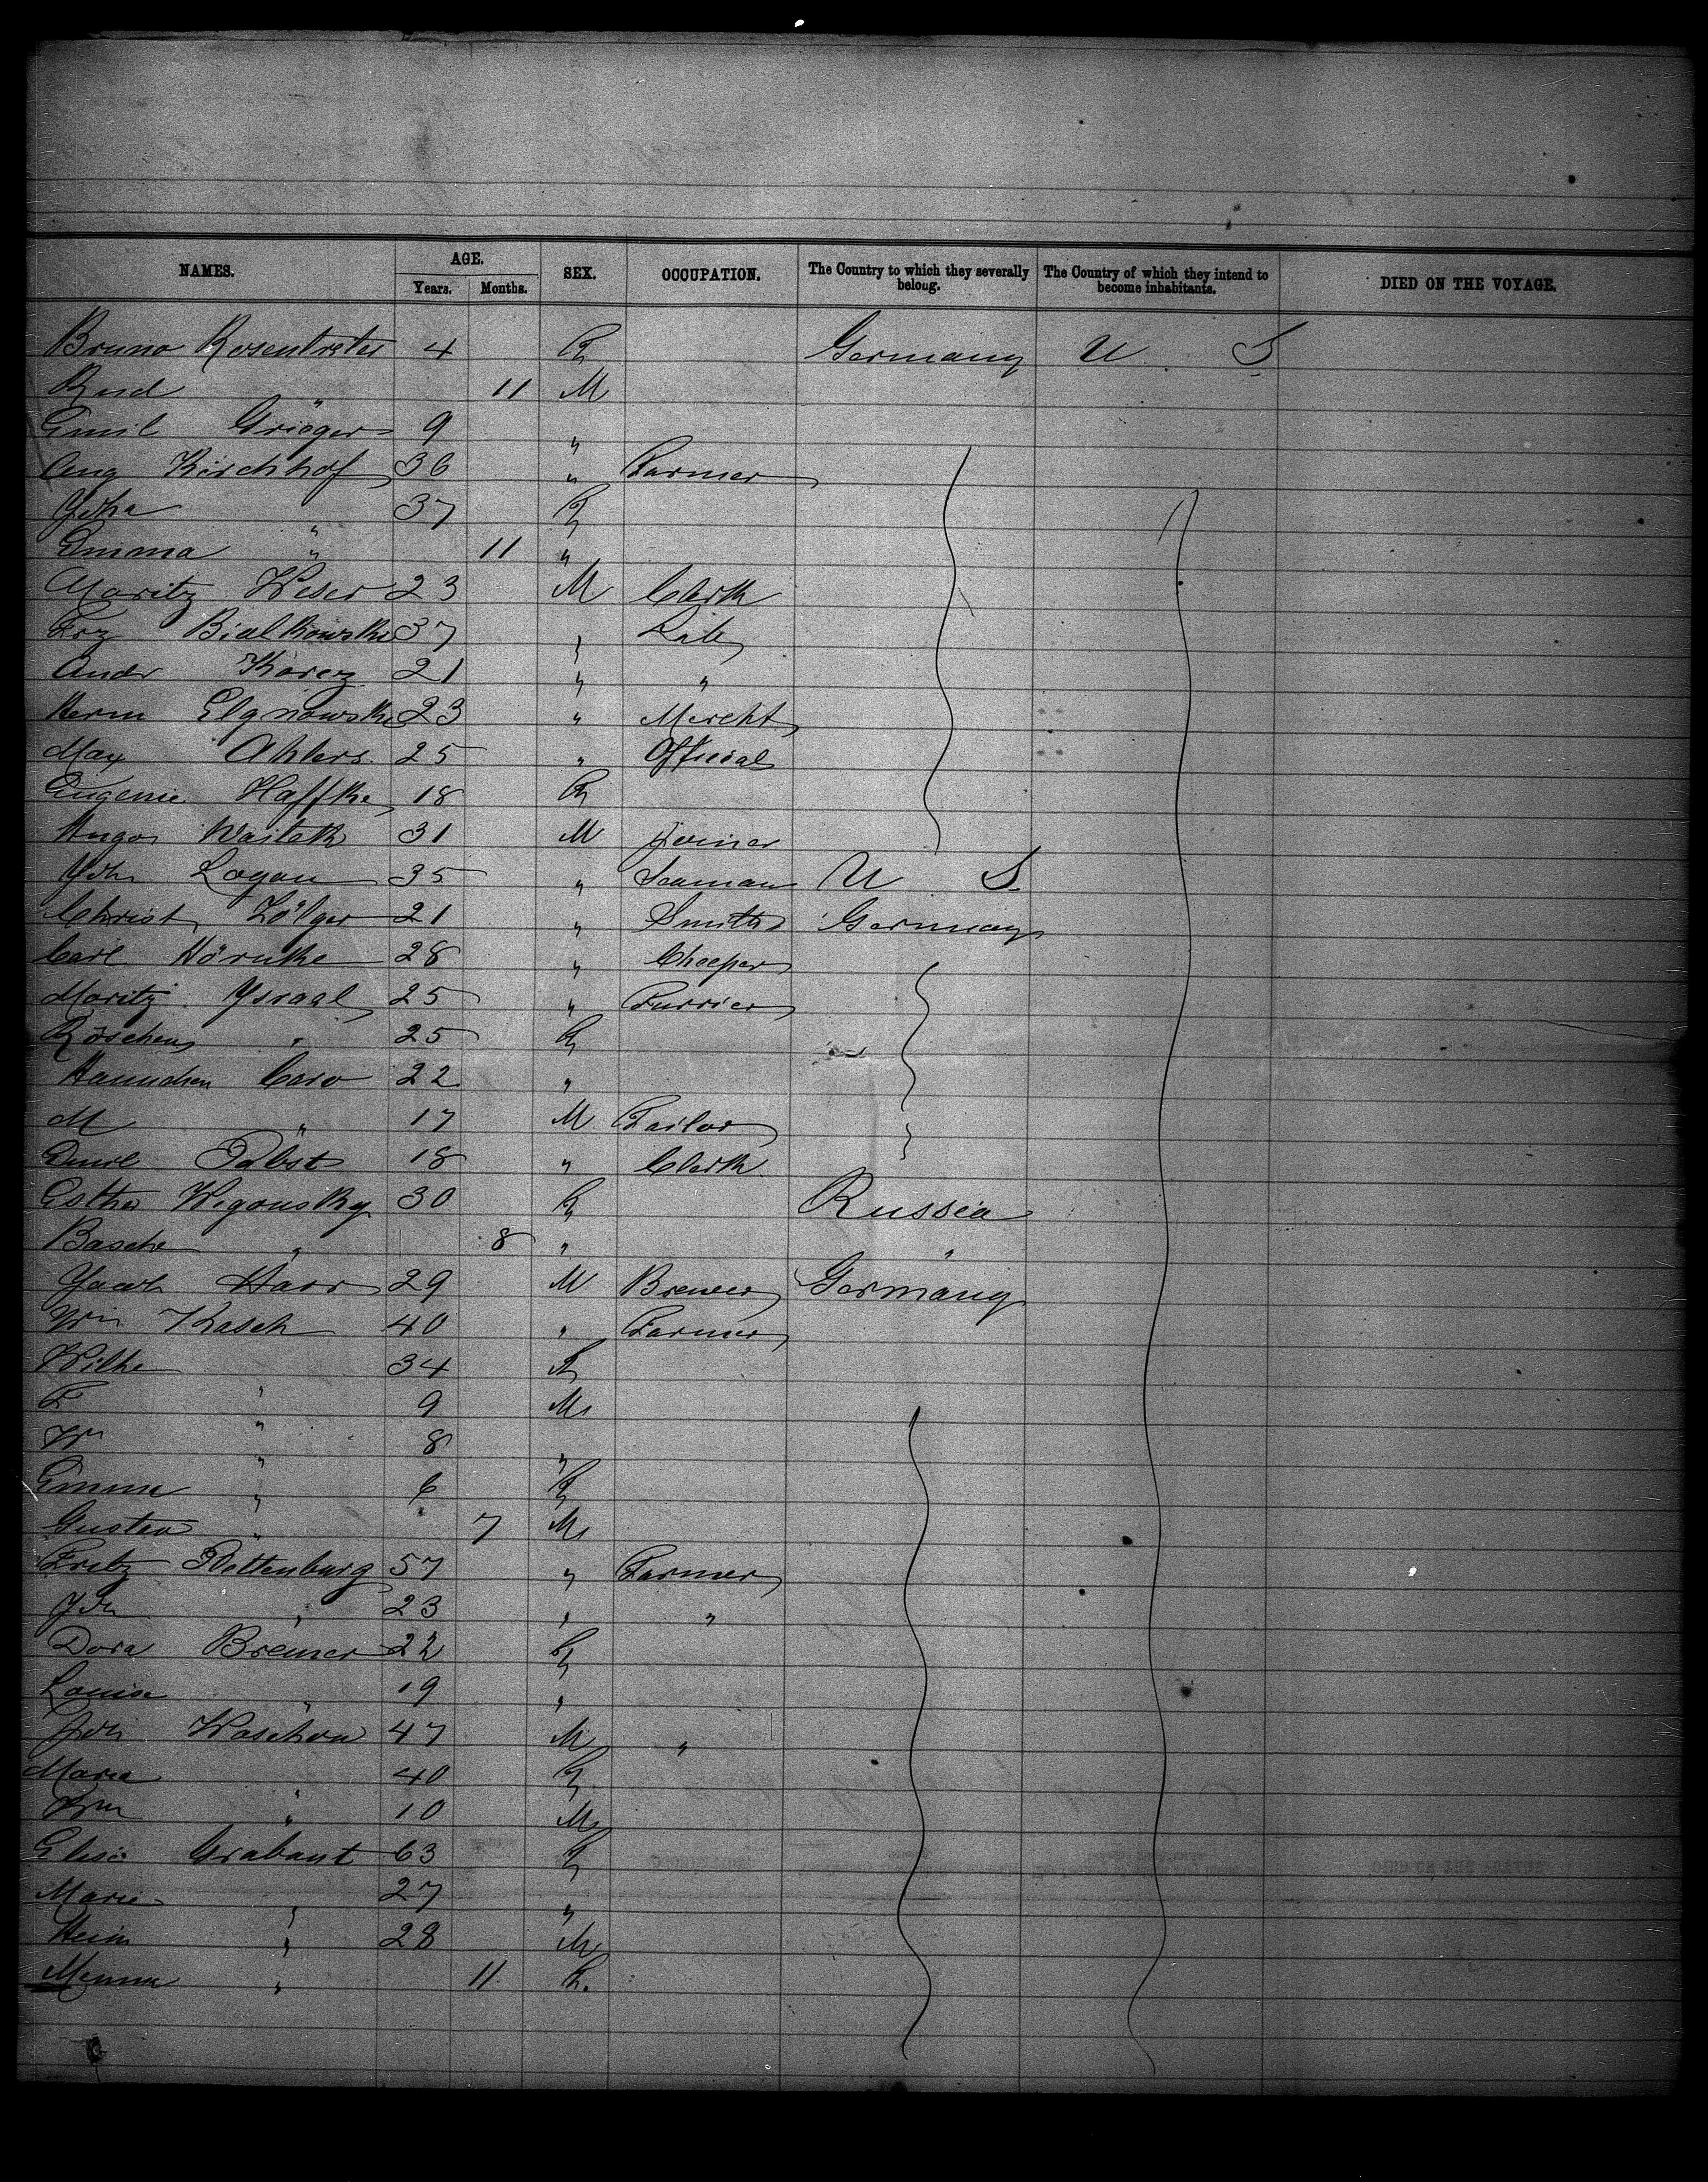 NAMES. AGE. Years. Months. SEX. OCCUPATION. The Country to which they severally belong. The Country of which they intend to become inhabitants. DIED ON THE VOYAGE.
Bruno Rosentreter 4 F Germany U S
" 11 M
Emil Grieger 9 "
Aug Kirchhof 36 " Farmer
Joha " 37 F
Emma " 11 "
Moritz Weser 23 M Clerk
Frz Bialkowski 37 " Lab
Andr Korcz 21 " "
Herm Elgnowski 23 " Mercht
Max Ahlers 25 " Official
Eugenie Haffke 18 F
Hugo 31 M Joiner
Joh Logan 35 " Seaman U S
Christ Zölger 21 " Smith Germany
Carl Hörnke 28 "
Moritz Ysraal 25 " Furrier
Röschen " 25 F
Hannchen Caro 22 "
M " 17 M Tailor
Emil Pabst 18 " Clerk
Esther Wigonsky 30 F Russia
Basche " 8 " "
Jacob Haar 29 M Brewer Germany
Wm Kasch 40 " Farmer
Wilhe " 34 F
F " 9 M
Wm " 8 "
Emma " 6 F
Gustav " 7 M
Fritz Plottenburg 57 " Farmer
Joh " 23 " "
Dora Bremer 22 F
Louise " 19 "
Joh Waschow 47 M "
Maria " 40 F
" 10 M
Elise Grabant 63 F
Marie " 27 "
Hein " 28 M
Minna " 11 F.